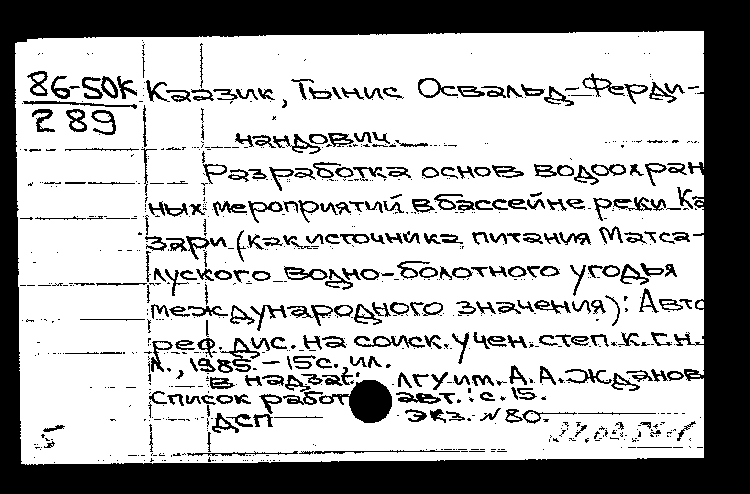 86-50К
289
Каазик, Тынис Освальд-Ферди-
нандович.
Разработка основ водоохран
ных мероприятий в бассейне реки Ка
зари (как источника питания Матса-
луского водно-болотного угодья
международного значения): Авто
реф. дис. на соиск. учен. степ. к.г.н.
Л., 1985. - 15 с., ил.
В надзаг.: ЛГУ им. А.А. Жданов
Список работ авт.: с. 15.
ДСП экз. № 80.
5